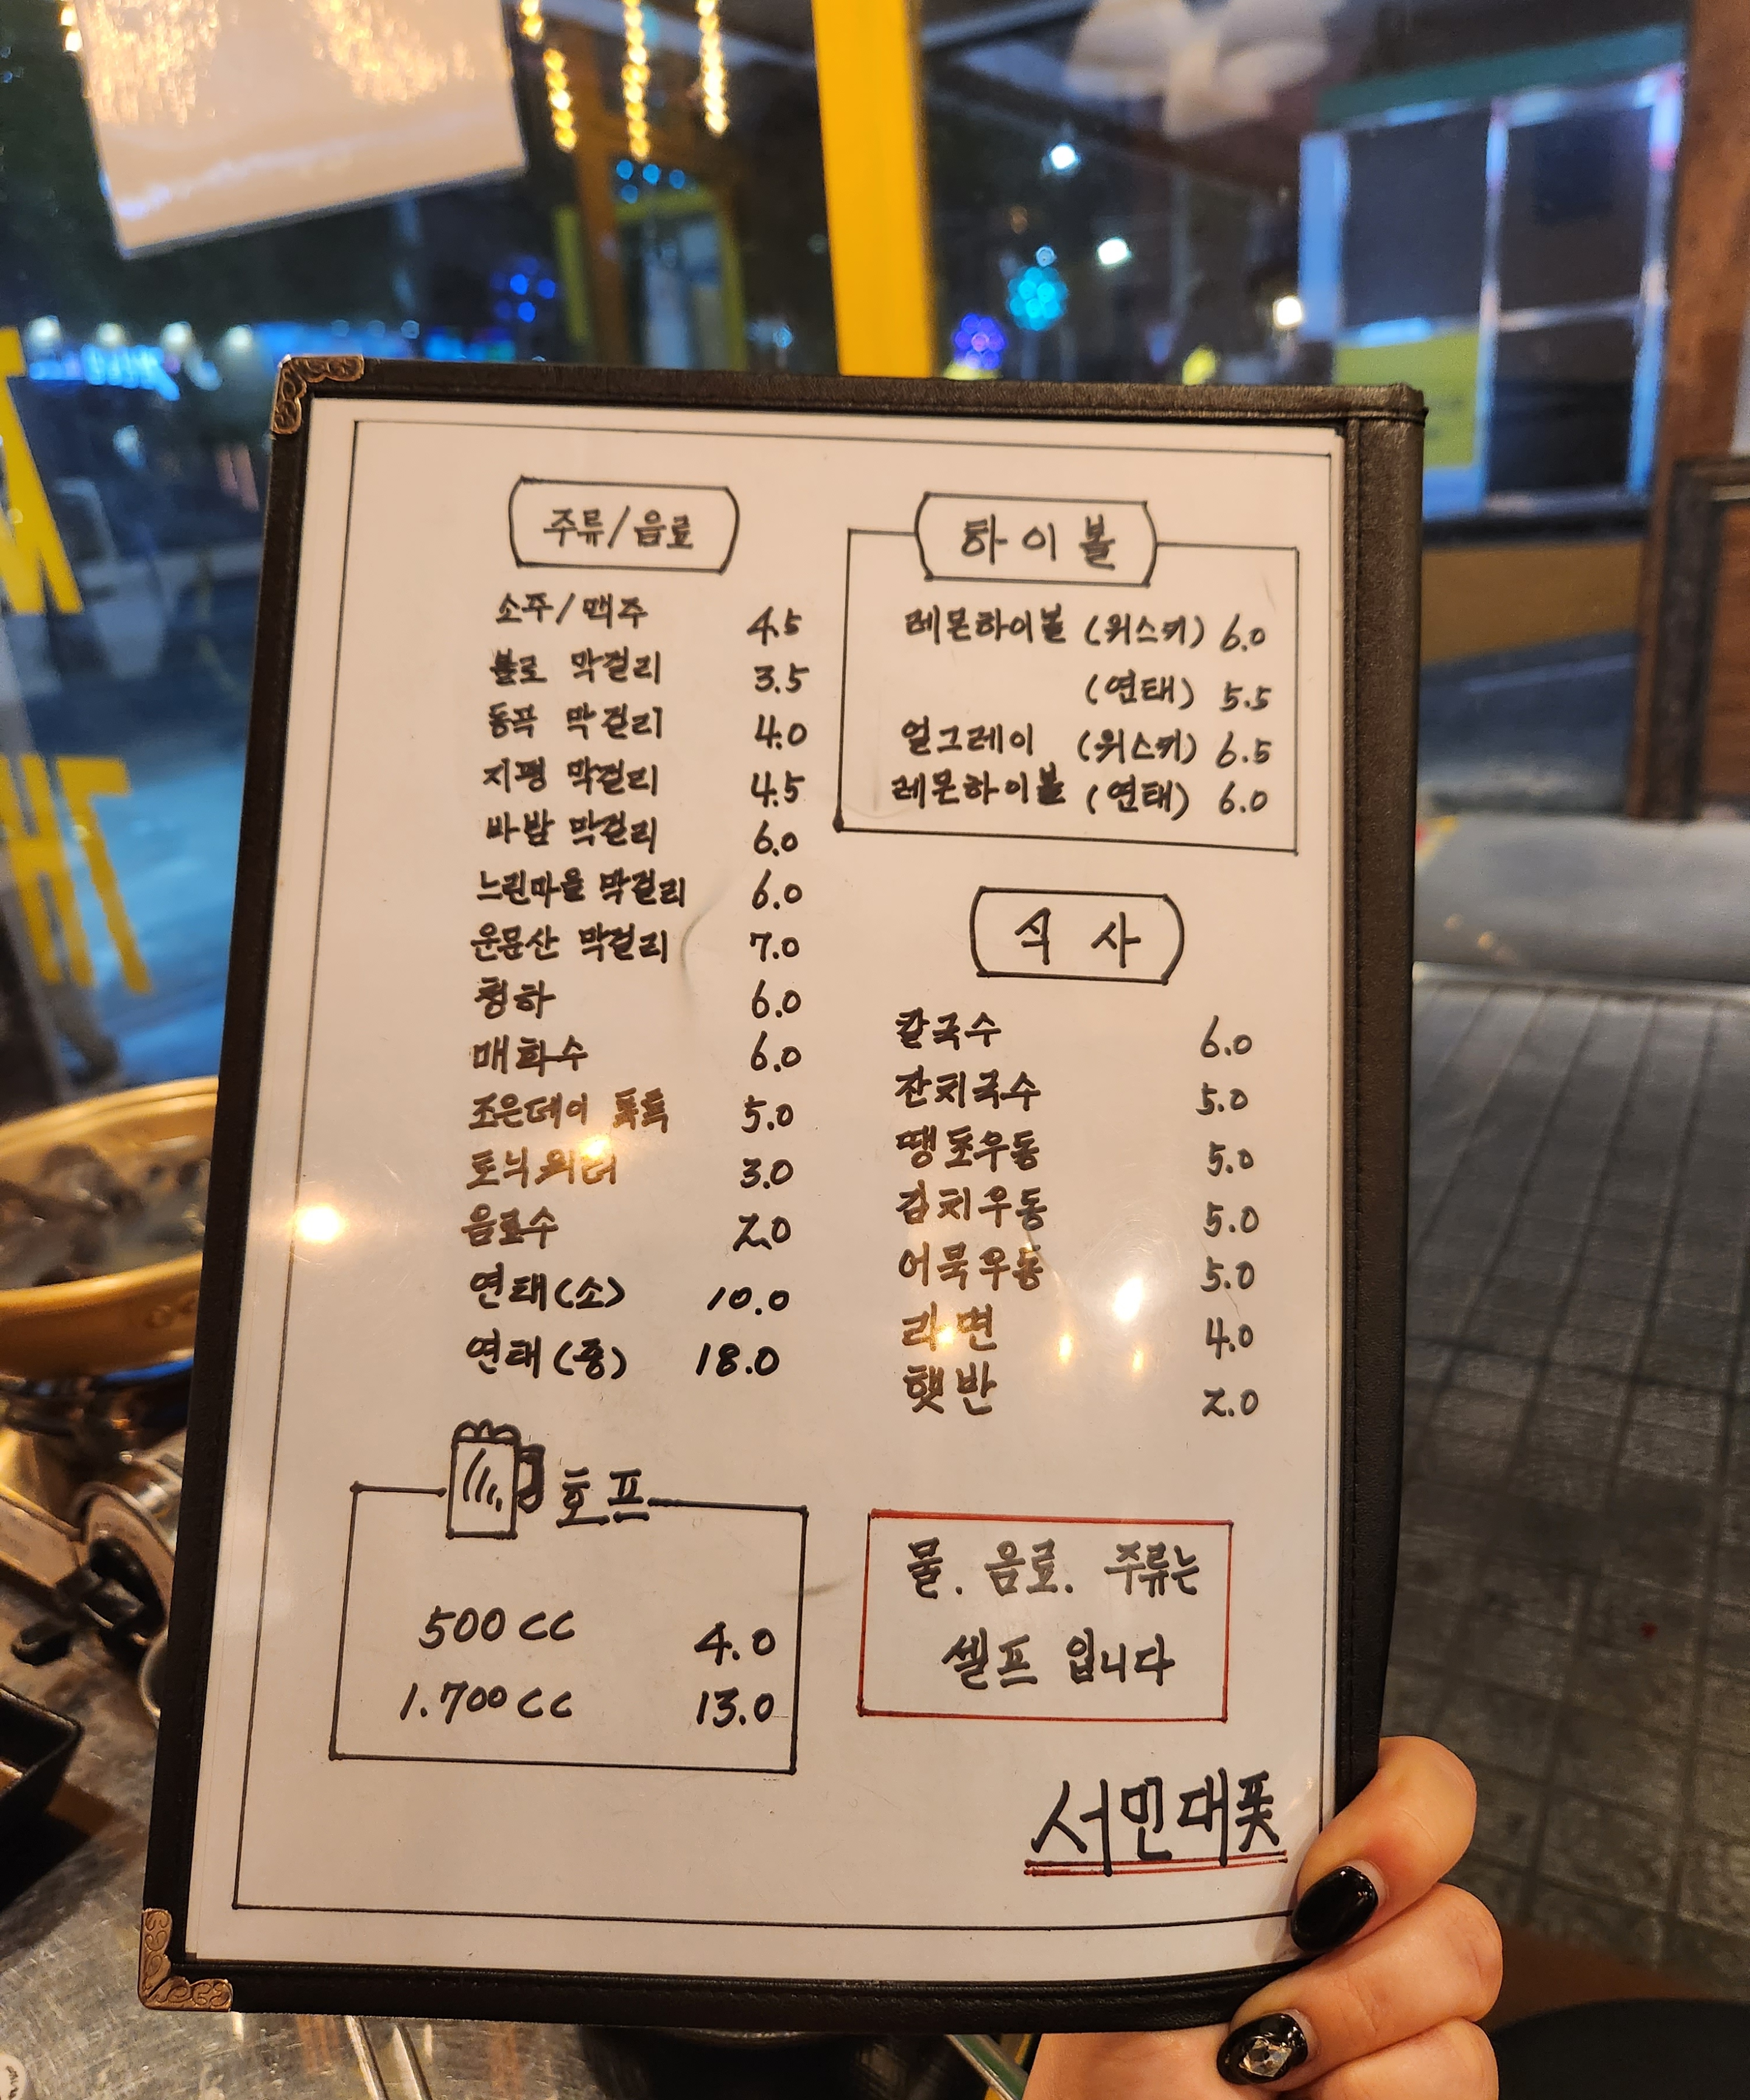 주류/음료
소주/맥주 4.5
불로 막걸리 3.5
동곡 막걸리 4.0
지평 막걸리 4.5
바밤 막걸리 6.0
느린마을 막걸리 6.0
운문산 막걸리 7.0
청하 6.0
매화수 6.0
조은데이 톡톡 5.0
토닉워터 3.0
음료수 2.0
연태(소) 10.0
연태(중) 18.0
호프
500CC 4.0
1.700CC 13.0
하이볼
레몬하이볼 (위스키) 6.0
(연태) 5.5
얼그레이 (위스키) 6.5
레몬하이볼 (연태) 6.0
식사
칼국수 6.0
잔치국수 5.0
땡초우동 5.0
김치우동 5.0
어묵우동 5.0
라면 4.0
햇반 2.0
물. 음료. 주류는
셀프 입니다
서민대폿